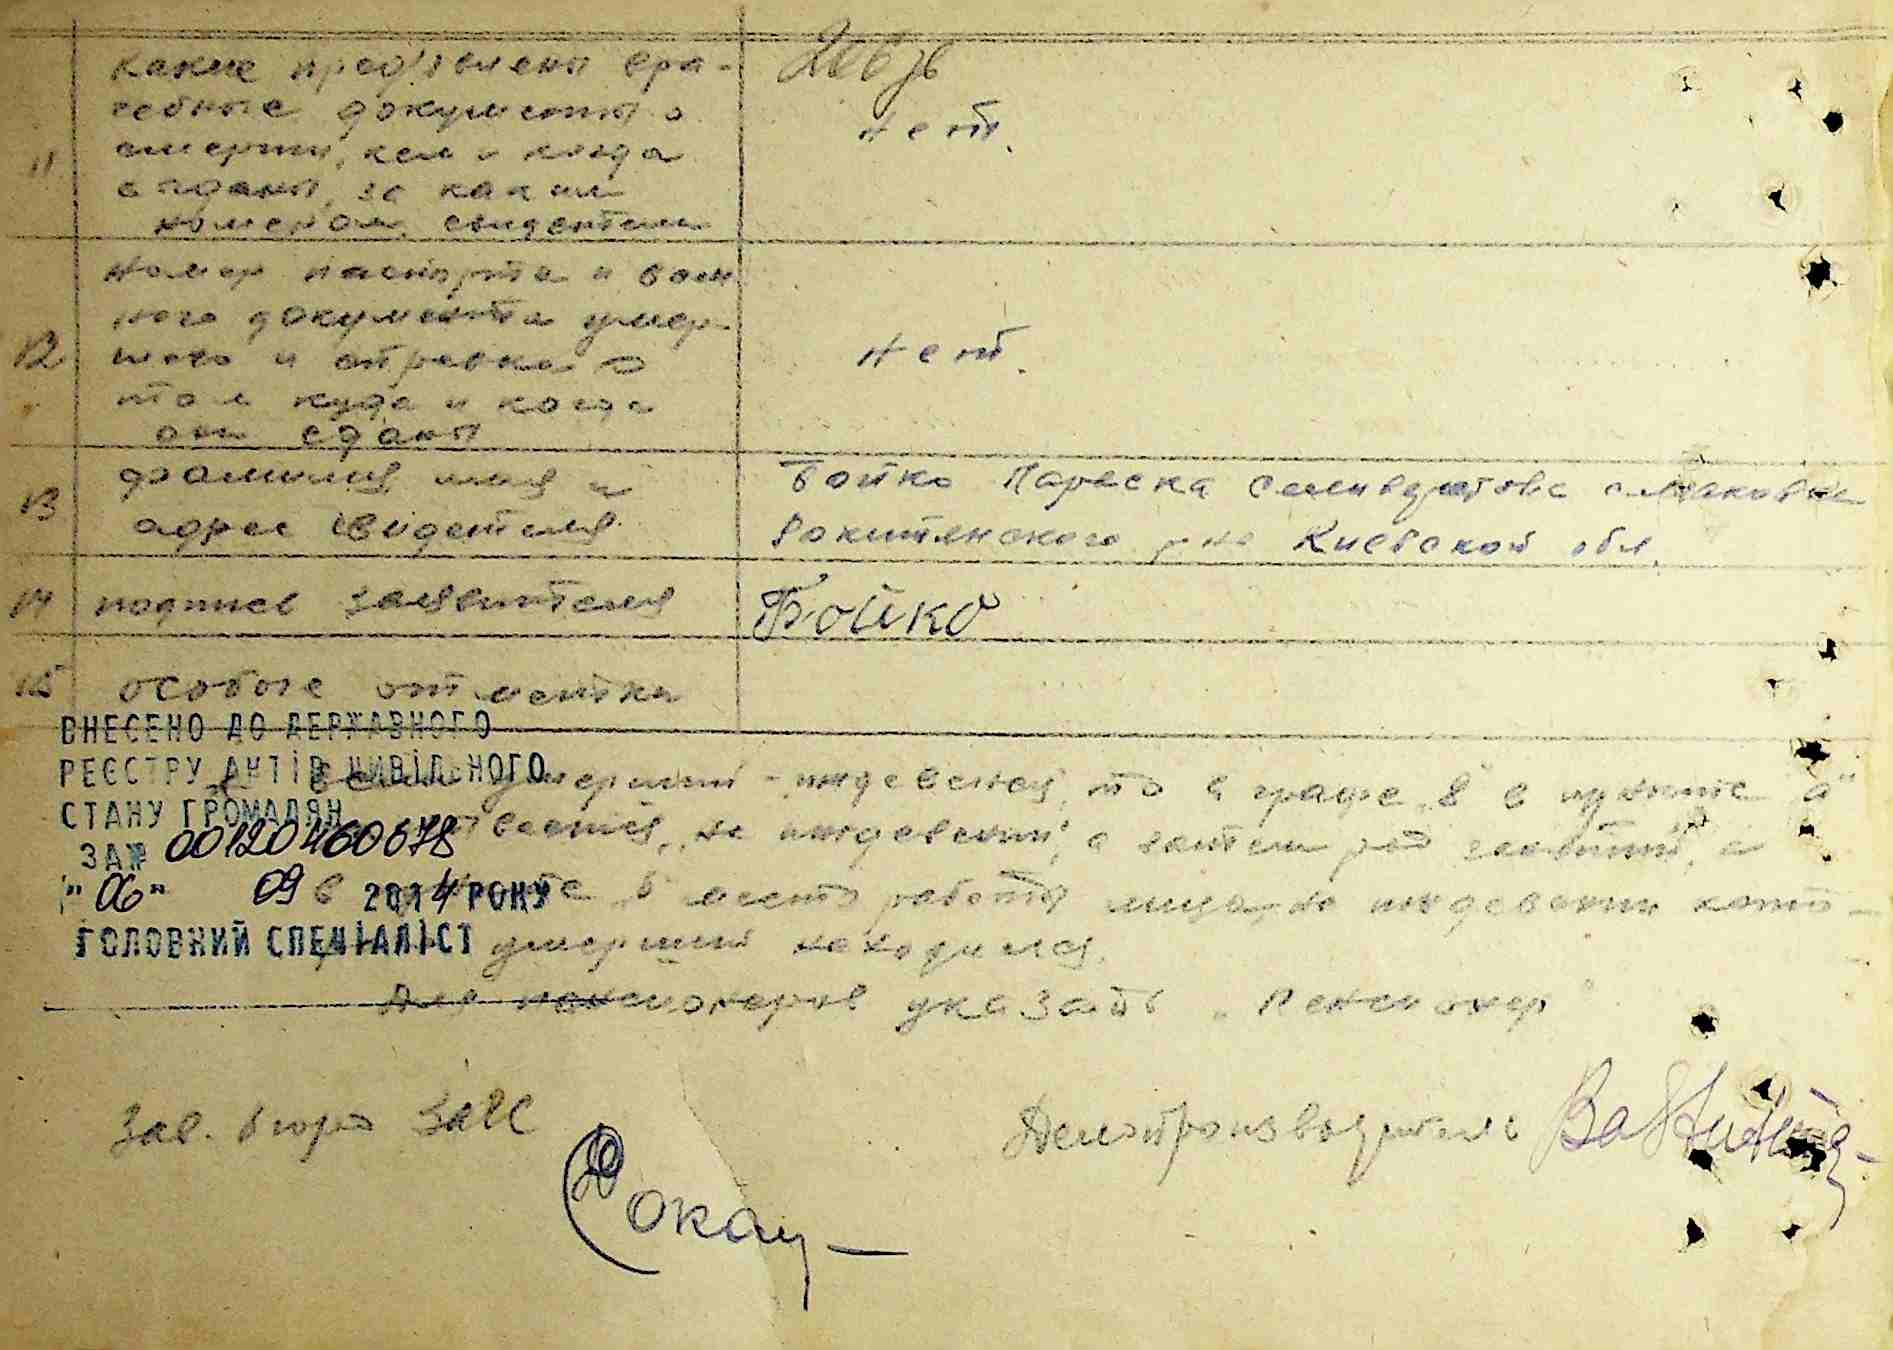 11
какие предъявлены вра-
чебные документы о
смерти, кем и когда
выданы, за каким
номером, свидетели
нет.
12
номер паспорта и воен
ного документа умер-
шего и отметка о
том куда и когда
они сданы
нет.
13
фамилия, имя и
адрес свидетеля
Бойко Параска
Рокитянского р-на Киевской обл.
14
подпись заявителя
Бойко
15
особые отметки
ВНЕСЕНО ДО ДЕРЖАВНОГО
РЕЄСТРУ АКТІВ ЦИВІЛЬНОГО
СТАНУ ГРОМАДЯН
ЗА № 00120460678
"06" 09 2014 РОКУ
ГОЛОВНИЙ СПЕЦІАЛІСТ
умерший - иждевенец, то в графе "8" в пункте "а"
"на иждевении", а затем род занятий, а
в "б" место работы лица, на иждевении кото-
умерший находился.
Для пенсионеров указать "Пенсионер"
Зав. бюро ЗАГС
Делопроизводитель